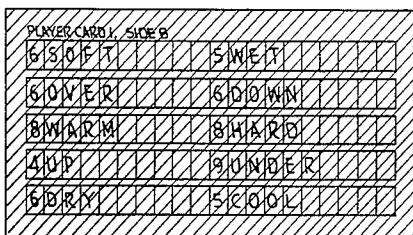 PLAYER CARD 1, SIDE B
6 SOFT 5 WET
6 OVER 6 DOWN
8 WARM 8 HARD
4 UP 9 UNDER
6 DRY 5 COOL